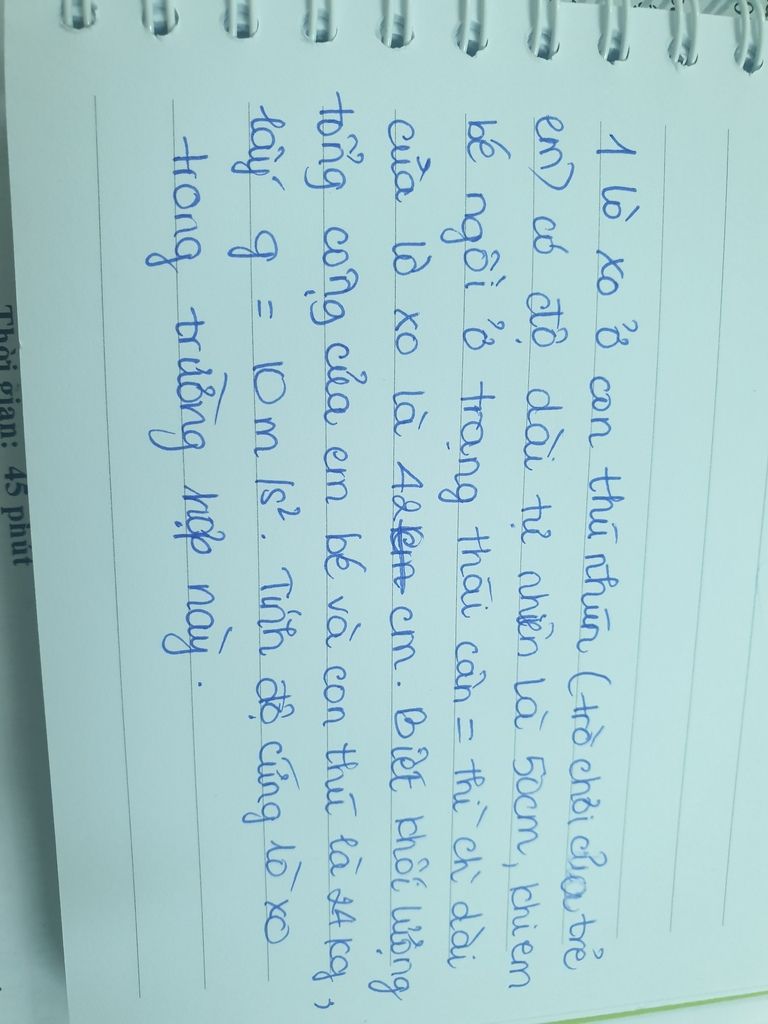 1 lò xo ở con thú nhún (trò chơi của trẻ
em) có độ dài tự nhiên là 50cm, khi em
bé ngồi ở trạng thái cân = thì chỉ dài
của lò xo là 42cm. Biết khối lượng
tổng cộng của em bé và con thú là 24kg,
lấy g = 10m/s². Tính độ cứng lò xo
trong trường hợp này.
Thời gian: 45 phút